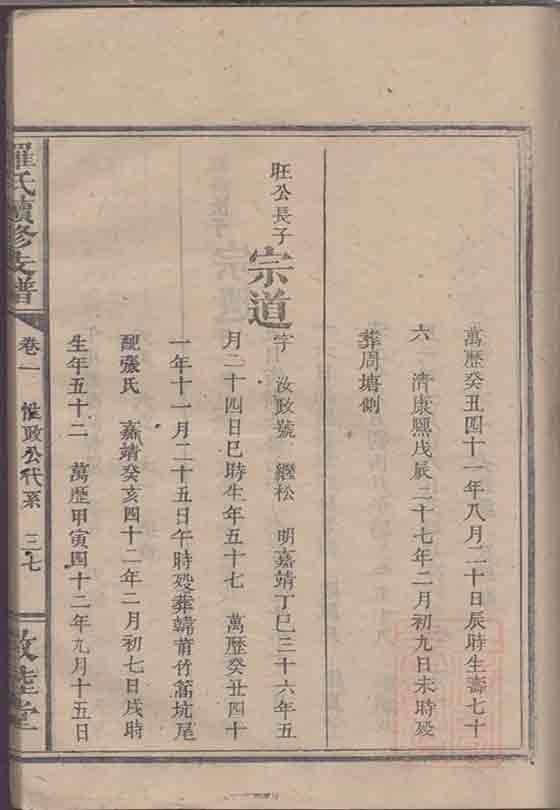 萬歷癸丑四十一年八月二十日辰時生壽七十
六　濟康熙戊辰二十七年二月初九日未時歿
葬周塘側
旺公長子
宗道
字　汝政號　繼松　明嘉靖丁巳三十六年五
月二十四日巳時生年五十七　萬歷癸丑四十
一年十一月二十五日午時歿葬韓莆竹篙坑尾
配張氏　嘉靖癸亥四十二年二月初七日戌時
生年五十二　萬歷甲寅四十二年九月十五日
羅氏續修支譜
卷一　惟政公代系　三七
敦陸堂